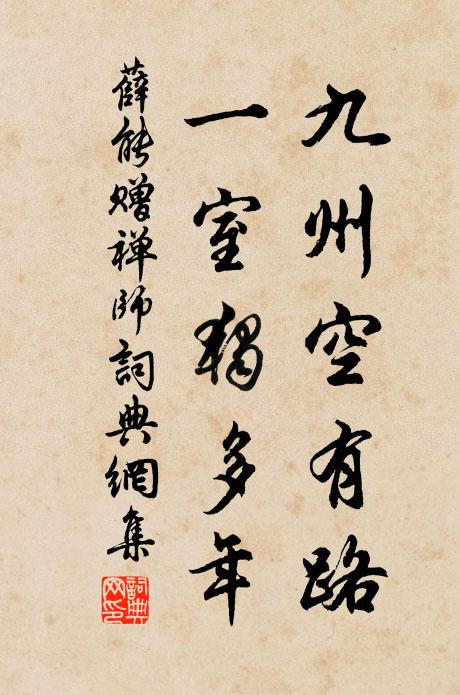 九州空有路
一室獨多年
薛能贈禪師詞典網集
詞典網印